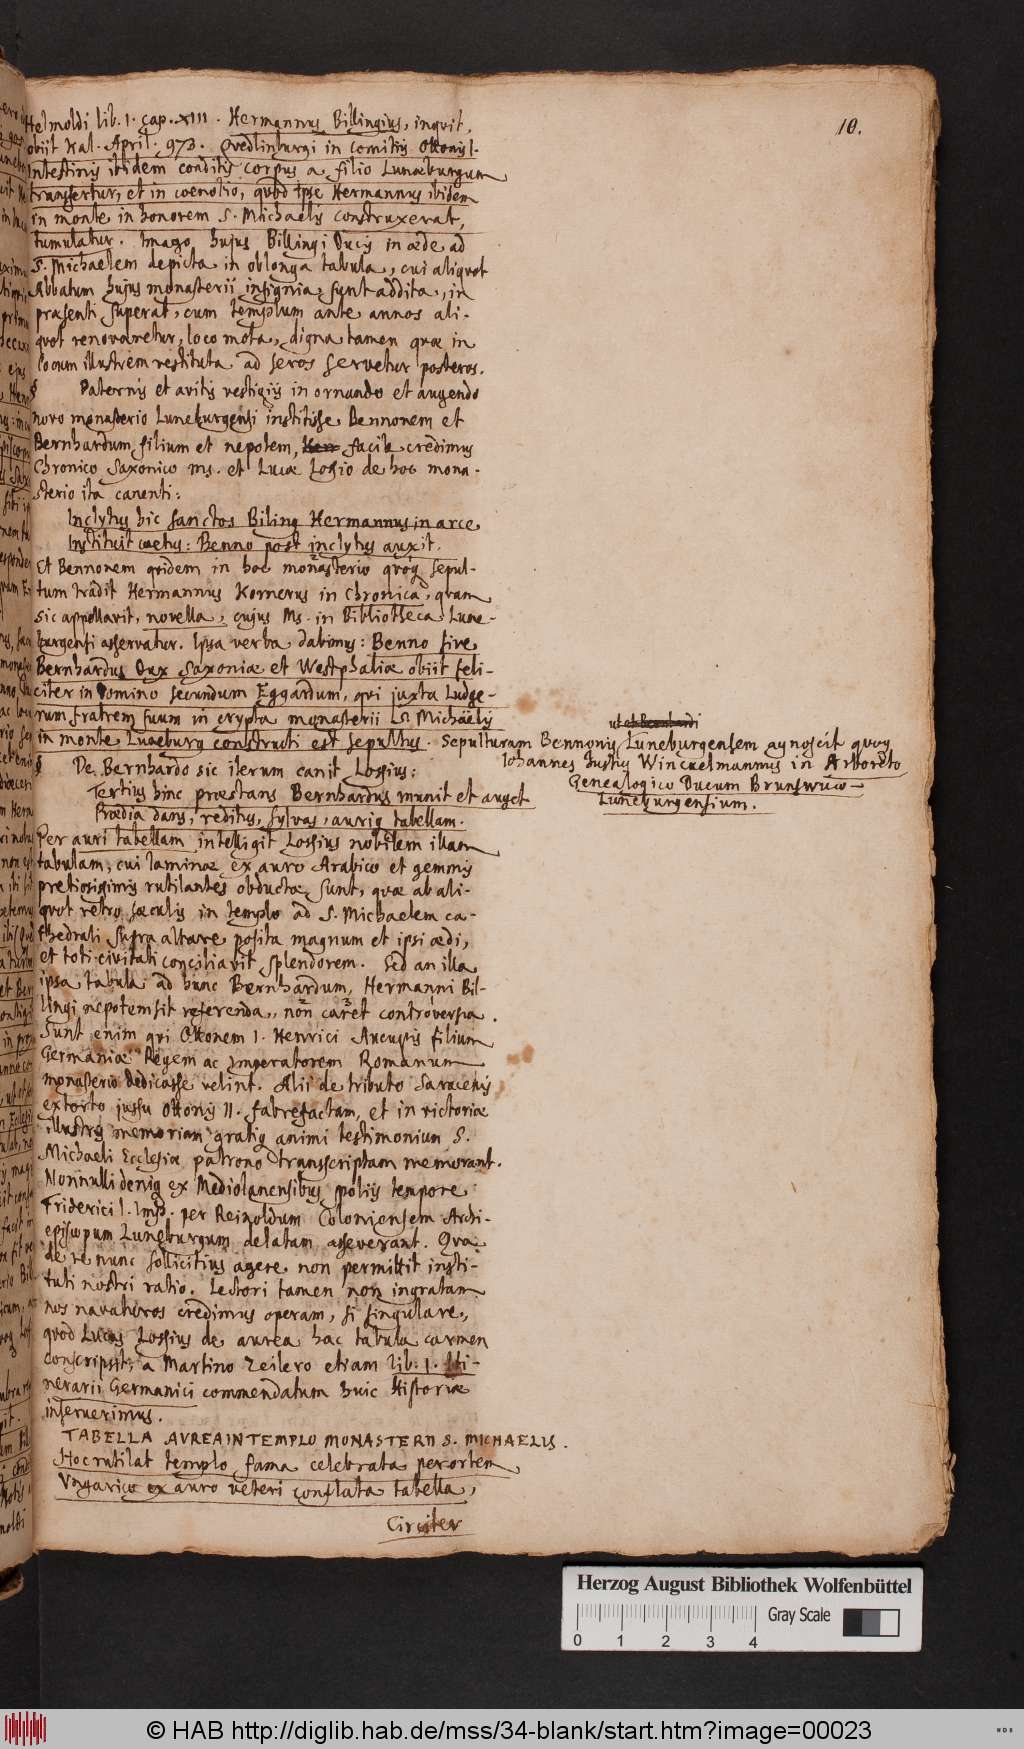 10.
Helmoldi lib. 1. cap. XIII. Hermannus Billingius, inquit,
obiit Kal. April. 973. Qvedlinburgi in comitiis Ottonis I.
Intestinis ibidem conditis corpus a filio Lunæburgum
transfertur, et in coenobio, quod ipse Hermannus ibidem
in monte in honorem S. Michaelis construxerat,
tumulatur. Imago hujus Billingi Ducis in æde ad
S. Michaelem depicta in oblonga tabula, cui aliquot
Abbatum hujus monasterii insignia sunt addita, in
præsenti superat, cum templum ante annos ali-
quot renovaretur, loco mota, digna tamen quæ in
locum illustrem restituta ad seros servetur posteros.
§ Paternis et avitis vestigiis in ornando et augendo
novo monasterio Luneburgensi institisse Bennonem et
Bernhardum filium et nepotem, facile credimus
Chronico Saxonico ms. et Lucæ Lossio de hoc mona-
sterio ita canenti:
Inclytus hic sanctos Biling Hermannus in arce
Instituit coetus: Benno post inclytus auxit.
Et Bennonem quidem in hoc monasterio quoq sepul-
tum tradit Hermannus Kornerus in Chronica, quam
sic appellavit, novella, cujus Ms. in Bibliotheca Lune-
burgensi asservatur. Ipsa verba dabimus: Benno sive
Bernhardus Dux Saxoniæ et Westphaliæ obiit feli-
citer in Domino secundum Eggardum, qui juxta Ludge-
rum fratrem suum in crypta monasterii S. Michaëlis
in monte Luneburg constructi est sepultus. Sepulturam Bennonis Luneburgensem agnoscit quoq
Iohannes Justus Winckelmannus in Arboreto
Genealogico Ducum Brunswico-
Luneburgensium.
§ De Bernhardo sic iterum canit Lossius:
Tertius hinc præstans Bernhardus munit et auget
Prædia dans, reditus, sylvas, auriq tabellam.
Per auri tabellam intelligit Lossius nobilem illam
tabulam, cui laminæ ex auro Arabico et gemmis
pretiosissimis rutilantes obductæ sunt, quæ ab ali-
quot retro sæculis in templo ad S. Michaelem ca-
thedrali supra altare posita magnum et ipsi ædi,
et toti civitati conciliavit splendorem. Sed an illa
ipsa tabula ad hunc Bernhardum, Hermanni Bil-
lingi nepotem sit referenda, non caret controversia.
Sunt enim qui Ottonem I. Henrici Aucupis filium
Germaniæ Regem ac Imperatorem Romanum
monasterio dedicasse velint. Alii de tributo Saracenis
extorto jussu Ottonis II. fabrefactam, et in victoriæ
illustris memoriam gratiq animi testimonium S.
Michaeli Ecclesiæ patrono transscriptam memorant.
Nonnulli deniq ex Mediolanensibus spoliis tempore
Friderici I. Imp. per Reinoldum Coloniensem Archi-
episcopum Luneburgum delatam asseverant. Qva
de re nunc sollicitius agere non permittit insti-
tuti nostri ratio. Lectori tamen non ingratam
nos navaturos credimus operam, si singulare,
quod Lucas Lossius de aurea hac tabula carmen
conscripsit, a Martino Zeilero etiam lib. 1. Iti-
nerarii Germanici commendatum huic Historiæ
inseruerimus.
TABELLA AVREA IN TEMPLO MONASTERII S. MICHAELIS.
Hoc rutilat templo fama celebrata per orbem
Vngarico ex auro veteri conflata tabella,
Circiter
Herzog August Bibliothek Wolfenbüttel
Gray Scale
0 1 2 3 4
© HAB http://diglib.hab.de/mss/34-blank/start.htm?image=00023